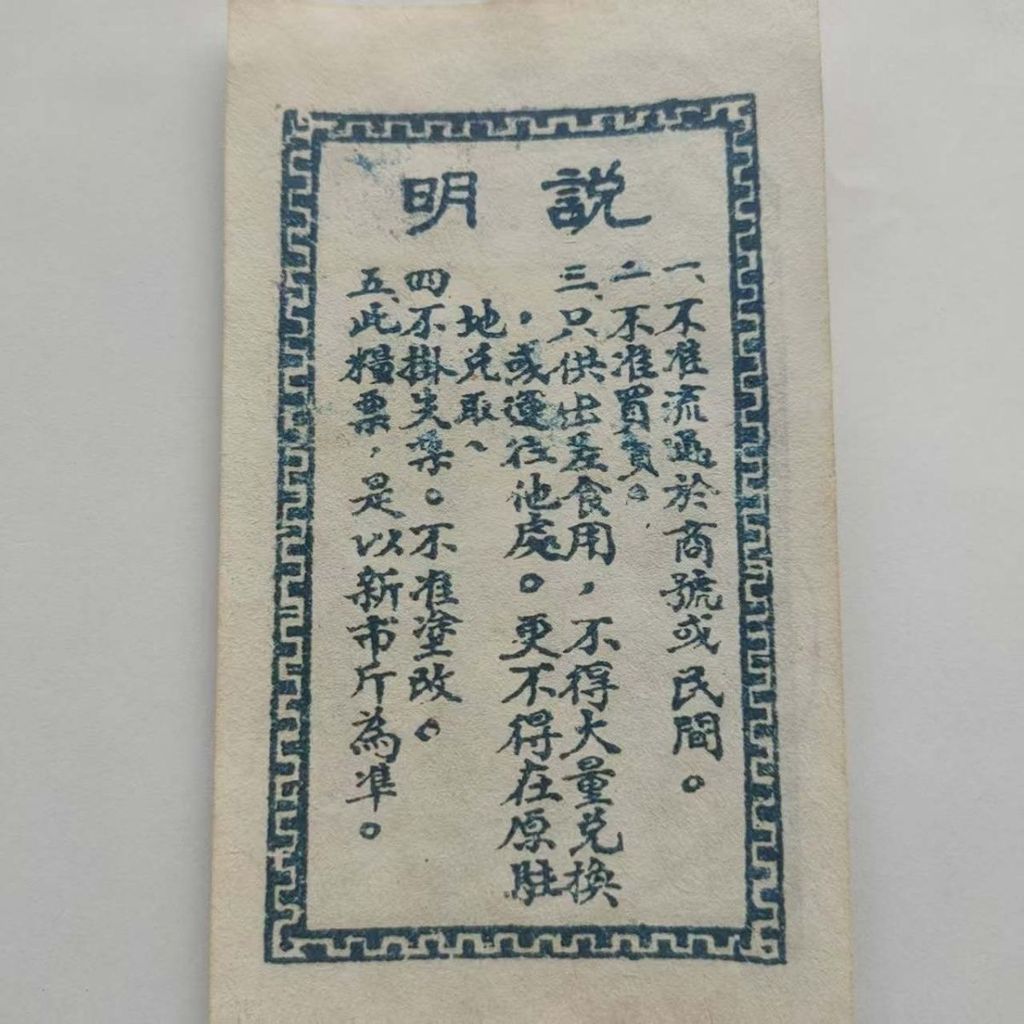 說明
一、不准流通於商號或民間。
二、不准買賣。
三、只供出差食用，不得大量兌換
，或運往他處。更不得在原駐
地兌取、
四不掛失票。不准塗改。
五、此糧票，是以新市斤為準。